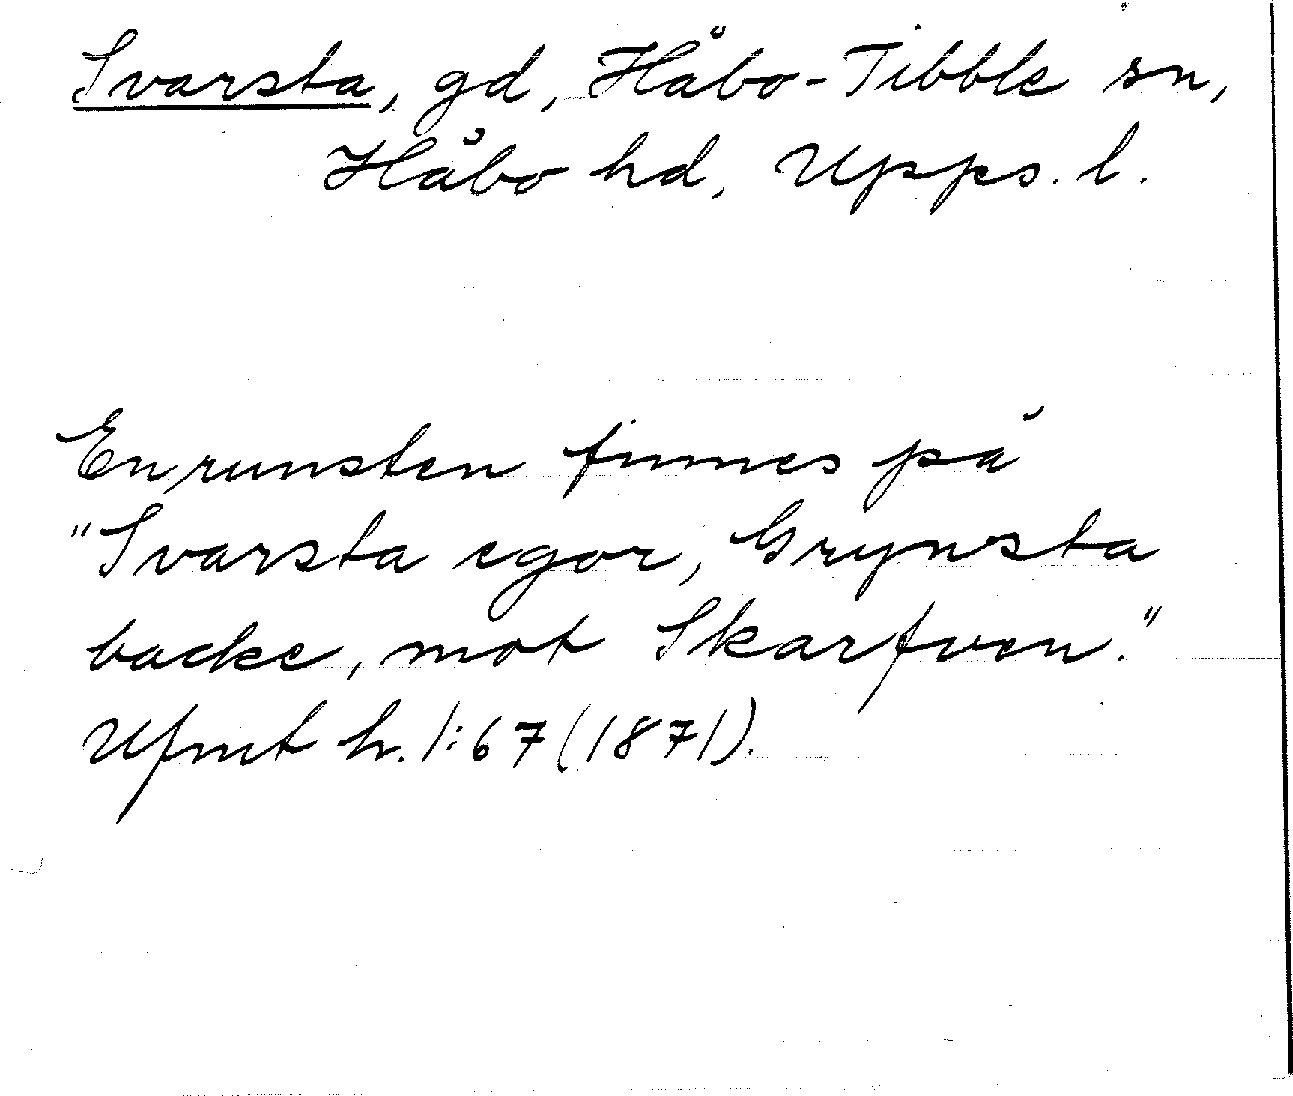 Svarsta, gd, Håbo-Tibble sn,
Håbo hd, Upps. l.
En runsten finnes på
"Svarsta egor, Grynsta
backe, mot Skarfven."
Ufmt h. 1:67 (1871).